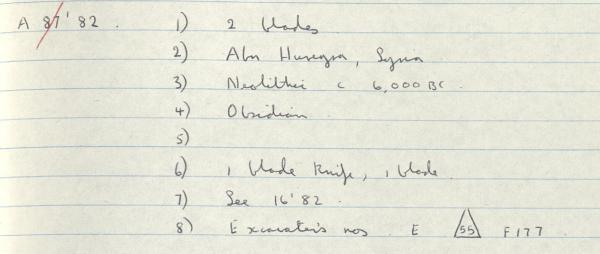 A 87'82. 1) 2 blades
2) Abu Hureyra, Syria
3) Neolithic c 6,000 BC.
4) Obsidian
5)
6) 1 blade knife, 1 blade.
7) See 16'82.
8) Excavator's nos E 55 F177